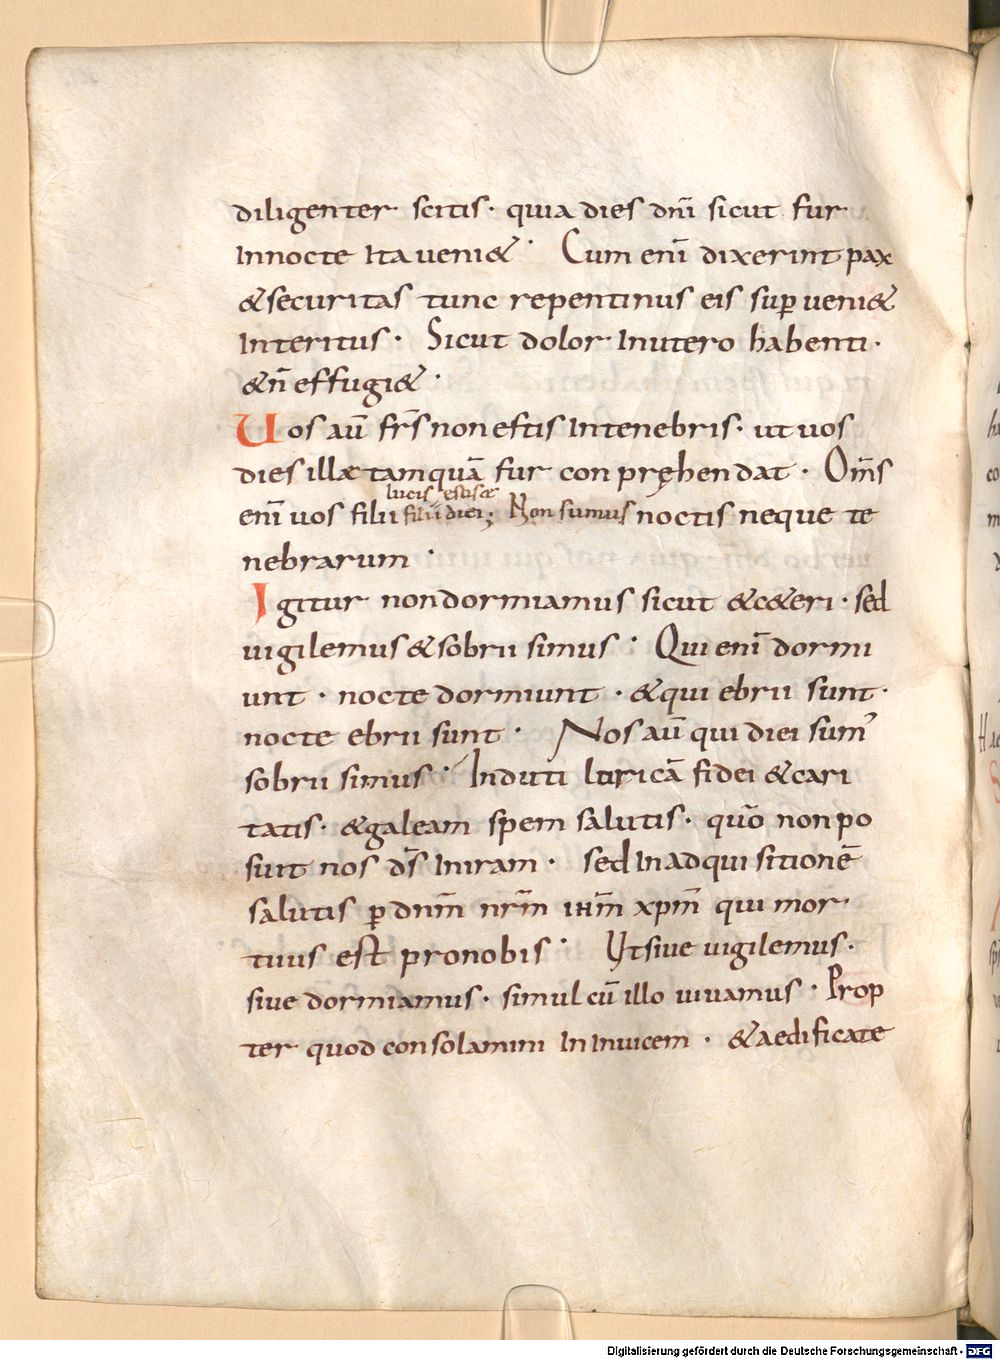 diligenter scitis· quia dies dñi sicut fur
Innocte Ita ueni& · Cum eni̅ dixerint pax
&securitas tunc repentinus eis sup̱ ueni&
Interitus · Sicut dolor Inutero habenti·
&n̅ effugi& ·
Uos au̅ fr̅s non estis Intenebris· ut uos
dies illæ tamqua̅ fur conpręhendat · Om̅s
lucis estis &
eni̅ uos filii filii diei; Non sumus noctis neque te
nebrarum ·
Igitur non dormiamus sicut &c&eri · sed
uigilemus &sobrii simus · Qui eni̅ dormi
unt · nocte dormiunt · &qui ebrii sunt·
nocte ebrii sunt · Nos au̅ qui diei sum᾽
sobrii simus · Induti lurica̅ fidei &cari
tatis· &galeam spem salutis· quo̅ non po
suit nos d̅s Iniram · sed Inadquisitione̅
salutis p̱ dnm̅ nrm̅ ihm̅ xpm̅ qui mor
tuus est pronobis · Ut siue uigilemus·
siue dormiamus· simul cu̅ illo uiuamus · Prop
ter quod consolamini In Inuicem · &aedificate
Digitalisierung gefördert durch die Deutsche Forschungsgemeinschaft - DFG